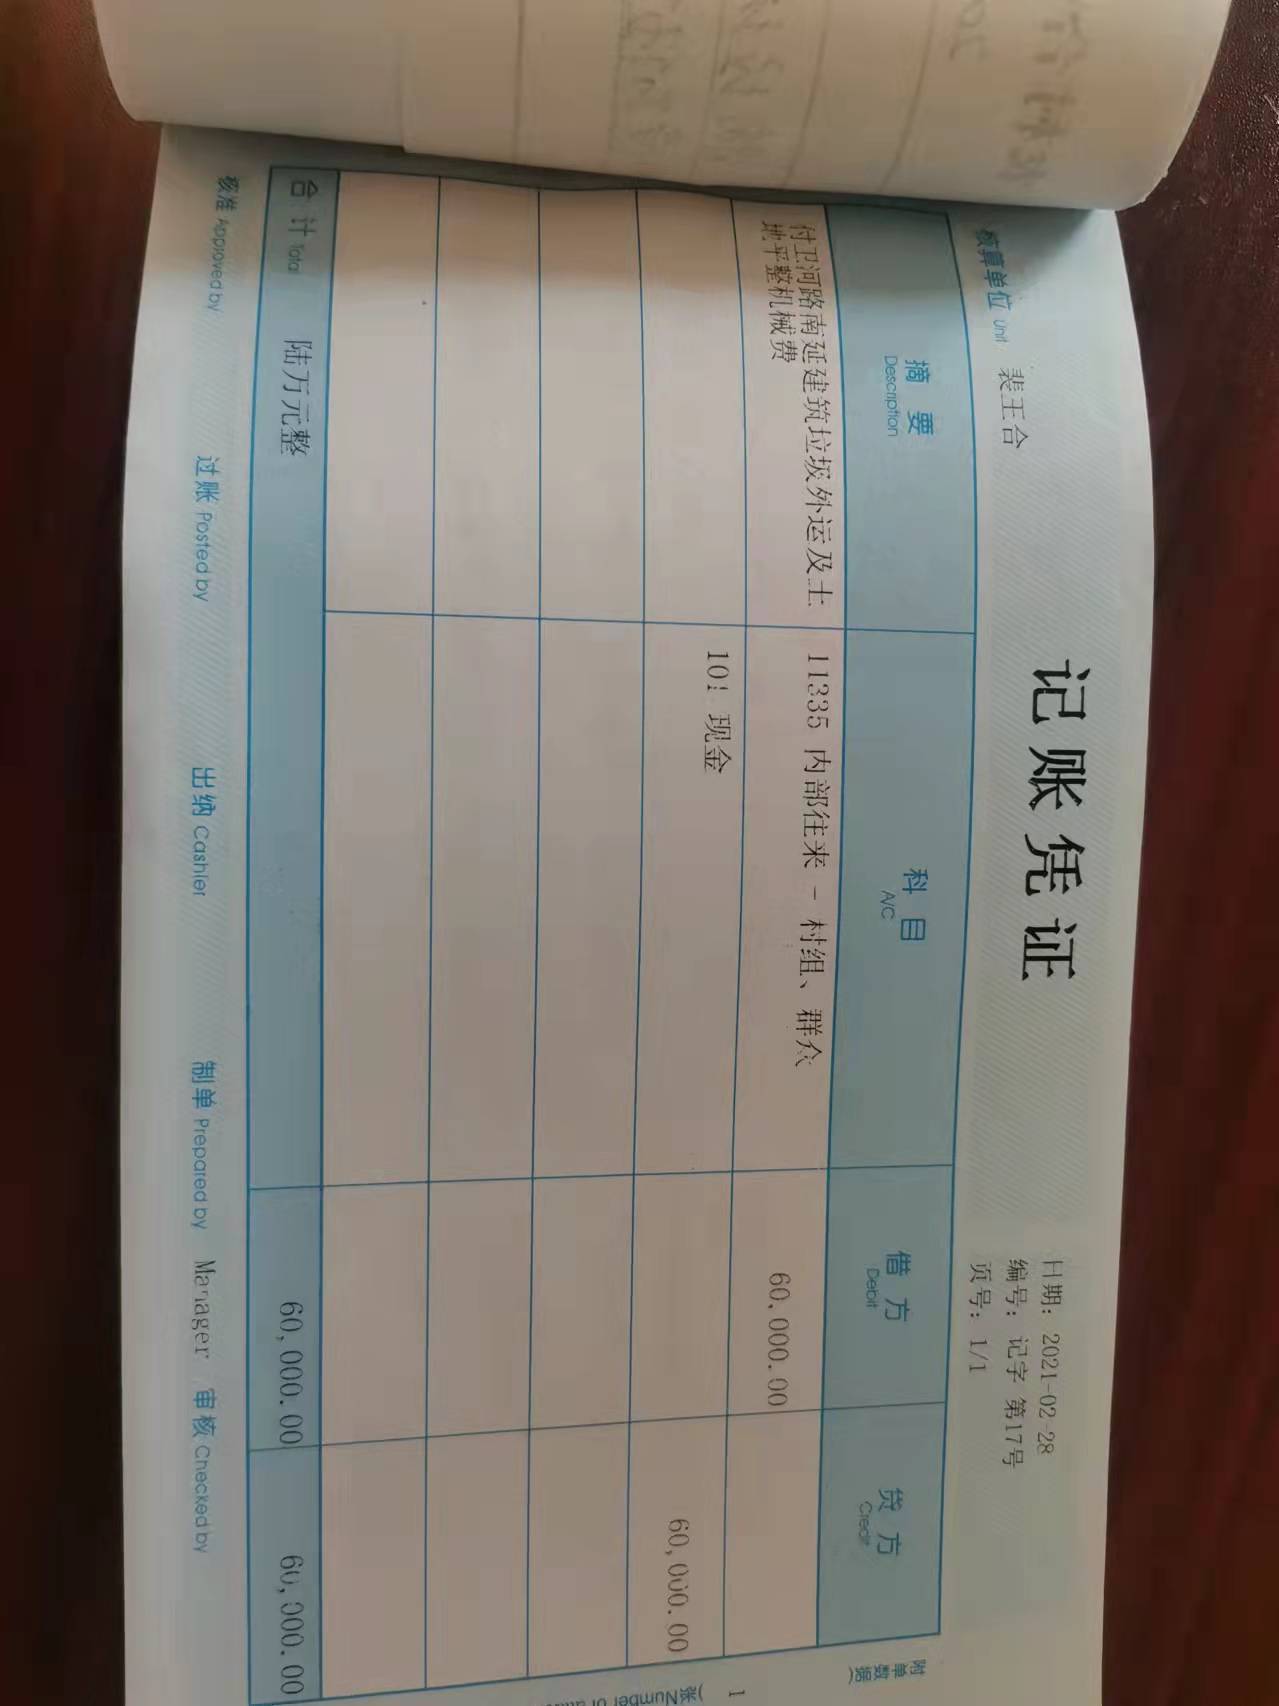 记账凭证
日期: 2021-02-28
编号: 记字 第17号
页号: 1/1
核算单位 Unit 裴王合
附单数据)
1
摘要 科目 借方 贷方
Description A/C Debit Credit
付卫河路南延建筑垃圾外运及土 11335 内部往来 - 村组、群众 60,000.00
地平整机械费
101 现金 60,000.00
合计 Total 陆万元整 60,000.00 60,000.00
核准 Approved by 过账 Posted by 出纳 Cashier 制单 Prepared by Manager 审核 Checked by